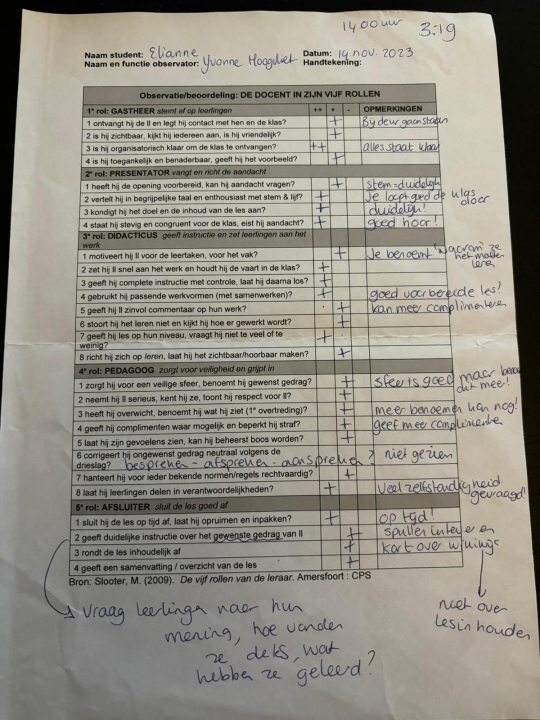 14.00 uur 3:19
Naam student: Elianne Datum: 14 nov. 2023
Naam en functie observator: Yvonne Hoogvliet Handtekening:
Observatie/beoordeling: DE DOCENT IN ZIJN VIJF ROLLEN
1e rol: GASTHEER stemt af op leerlingen ++ + - OPMERKINGEN
1 ontvangt hij de ll en legt hij contact met hen en de klas? + Bij deur gaan staan
2 is hij zichtbaar, kijkt hij iedereen aan, is hij vriendelijk? +
3 is hij organisatorisch klaar om de klas te ontvangen? ++ alles staat klaar
4 is hij toegankelijk en benaderbaar, geeft hij het voorbeeld? +
2e rol: PRESENTATOR vangt en richt de aandacht
1 heeft hij de opening voorbereid, kan hij aandacht vragen? + stem = duidelijk
2 vertelt hij in begrijpelijke taal en enthousiast met stem & lijf? + Je loopt goed de klas door
3 kondigt hij het doel en de inhoud van de les aan? + duidelijk!
4 staat hij stevig en congruent voor de klas, eist hij aandacht? + goed hoor!
3e rol: DIDACTICUS geeft instructie en zet leerlingen aan het
werk
1 motiveert hij ll voor de leertaken, voor het vak? + Je benoemt "waarom" ze het moeten leren
2 zet hij ll snel aan het werk en houdt hij de vaart in de klas? +
3 geeft hij complete instructie met controle, laat hij daarna los? +
4 gebruikt hij passende werkvormen (met samenwerken)? + goed voorbereide les!
5 geeft hij ll zinvol commentaar op hun werk? + kan meer complimenteren
6 stoort hij het leren niet en kijkt hij hoe er gewerkt wordt? +
7 geeft hij les op hun niveau, vraagt hij niet te veel of te
weinig? +
8 richt hij zich op leren, laat hij het zichtbaar/hoorbaar maken? +
4e rol: PEDAGOOG zorgt voor veiligheid en grijpt in
1 zorgt hij voor een veilige sfeer, benoemt hij gewenst gedrag? + sfeer is goed maar benoem dit meer!
2 neemt hij ll serieus, kent hij ze, toont hij respect voor ll? +
3 heeft hij overwicht, benoemt hij wat hij ziet (1e overtreding)? + meer benoemen kan nog!
4 geeft hij complimenten waar mogelijk en beperkt hij straf? + geef meer complimenten
5 laat hij zijn gevoelens zien, kan hij beheerst boos worden? +
6 corrigeert hij ongewenst gedrag neutraal volgens de
drieslag? bespreken - afspreken - aanspreken ? niet gezien
7 hanteert hij voor ieder bekende normen/regels rechtvaardig? +
8 laat hij leerlingen delen in verantwoordelijkheden? + Veel zelfstandigheid gevraagd!
5e rol: AFSLUITER sluit de les goed af
1 sluit hij de les op tijd af, laat hij opruimen en inpakken? + op tijd!
2 geeft duidelijke instructie over het gewenste gedrag van ll + spullen inleveren
3 rondt de les inhoudelijk af + kort over
4 geeft een samenvatting / overzicht van de les +
Bron: Slooter, M. (2009). De vijf rollen van de leraar. Amersfoort : CPS
niet over
lesinhouden
Vraag leerlingen naar hun
mening, hoe vonden
ze de les, wat
hebben ze geleerd?